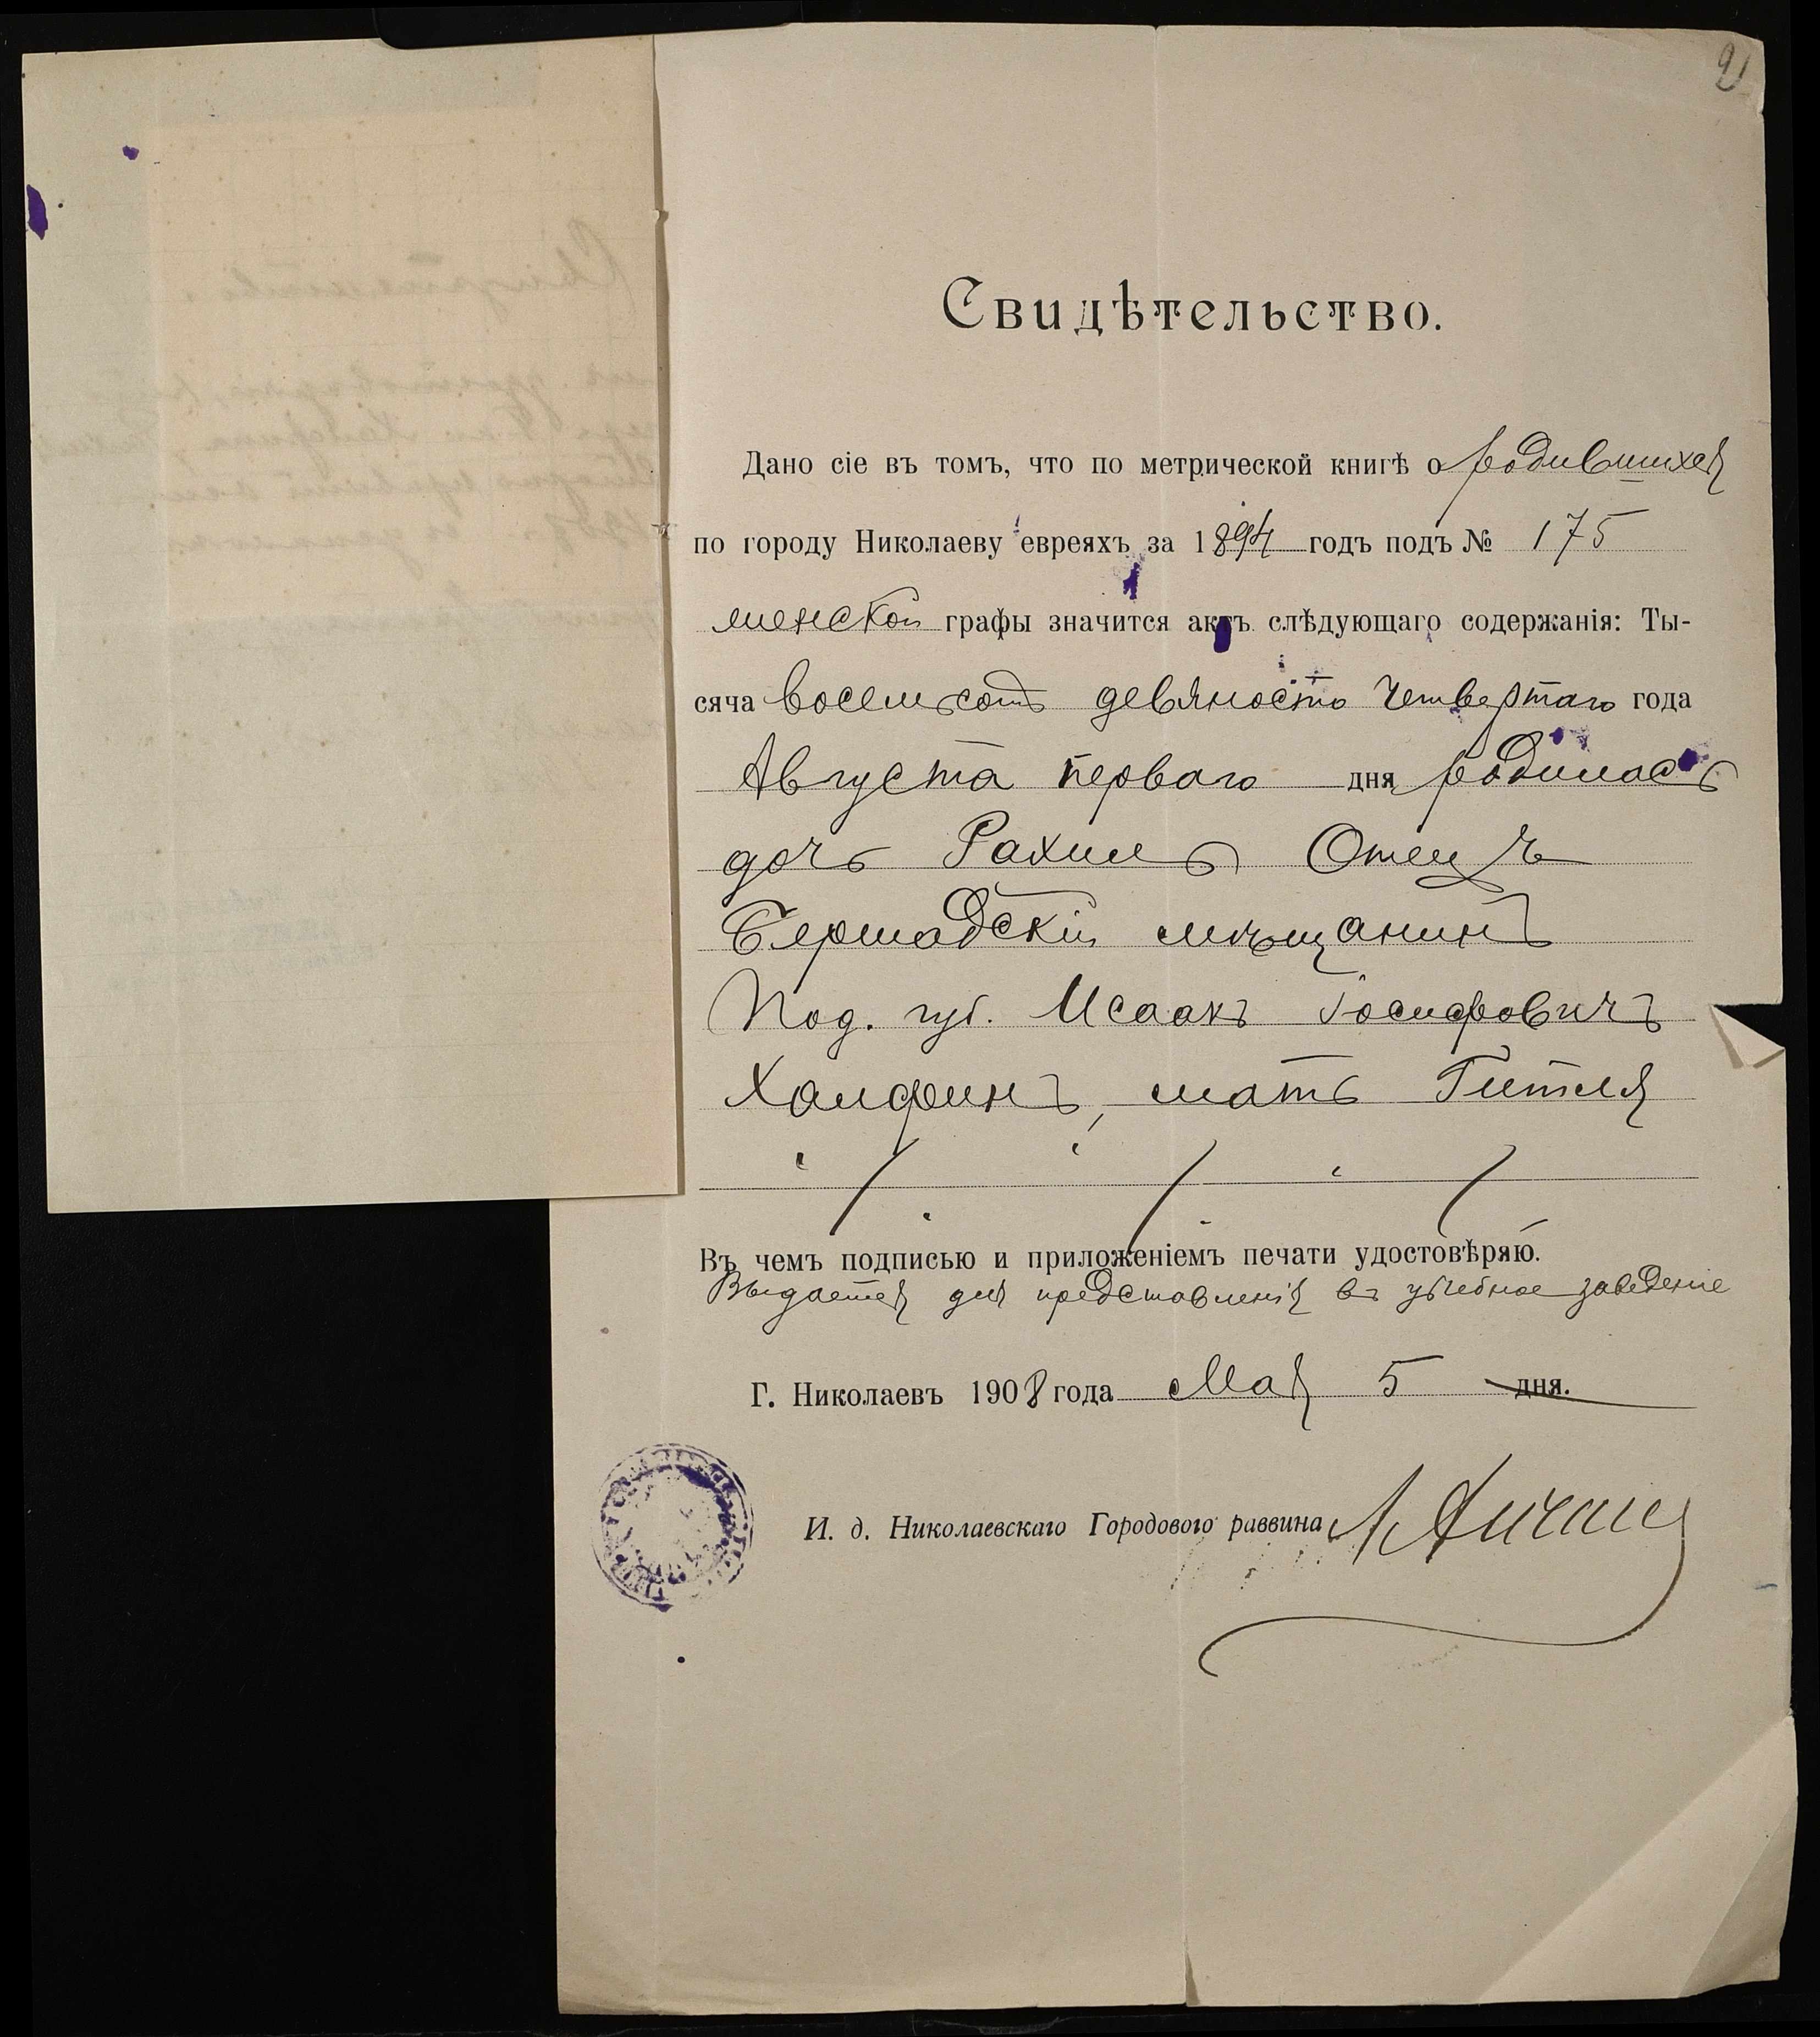 Свидѣтельство.
Дано сіе въ томъ, что по метрической книгѣ о родившихся
по городу Николаеву евреяхъ за 1894 годъ подъ № 175
женской графы значится актъ слѣдующаго содержанія: Ты-
сяча восемьсотъ девяносто четвертаго года
Августа перваго дня родилась
дочь Рахиль Отецъ
Бершадскій мѣщанинъ
Под. губ. Исаакъ Іосифовичъ
Халфинъ, мать Гитля
Въ чемъ подписью и приложеніемъ печати удостовѣряю.
Выдается для представленія въ учебное заведеніе
Г. Николаевъ 1908 года Мая 5 дня.
И. д. Николаевскаго Городового раввина